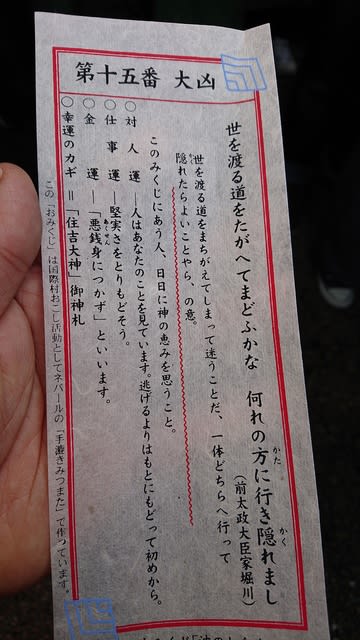 第十五番 大凶
世を渡る道をたがへてまどふかな 何れの方に行き隠れまし
かた
かく
(前太政大臣家堀川)
世を渡る道をまちがえてしまって迷うことだ、一体どちらへ行って
隠れたらよいことやら、の意。
このみくじにあう人、日日に神の恵みを思うこと。
○対人運―人はあなたのことを見ています。逃げるよりはもとにもどって初めから。
○仕事運―堅実さをとりもどそう。
○金運―「悪銭身につかず」といいます。
あくせん
○幸運のカギ=「住吉大神」御神札
この「おみくじ」は国際村おこし活動としてネパールの「手漉きみつまた」で作っています。